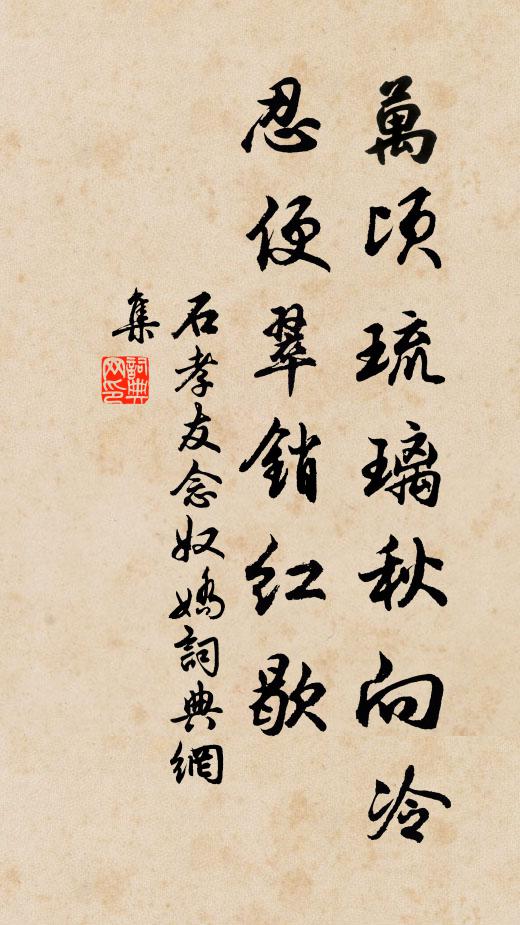 萬頃琉璃秋向冷
忍便翠銷红歇
石孝友念奴嬌詞典網
集
詞典
网印